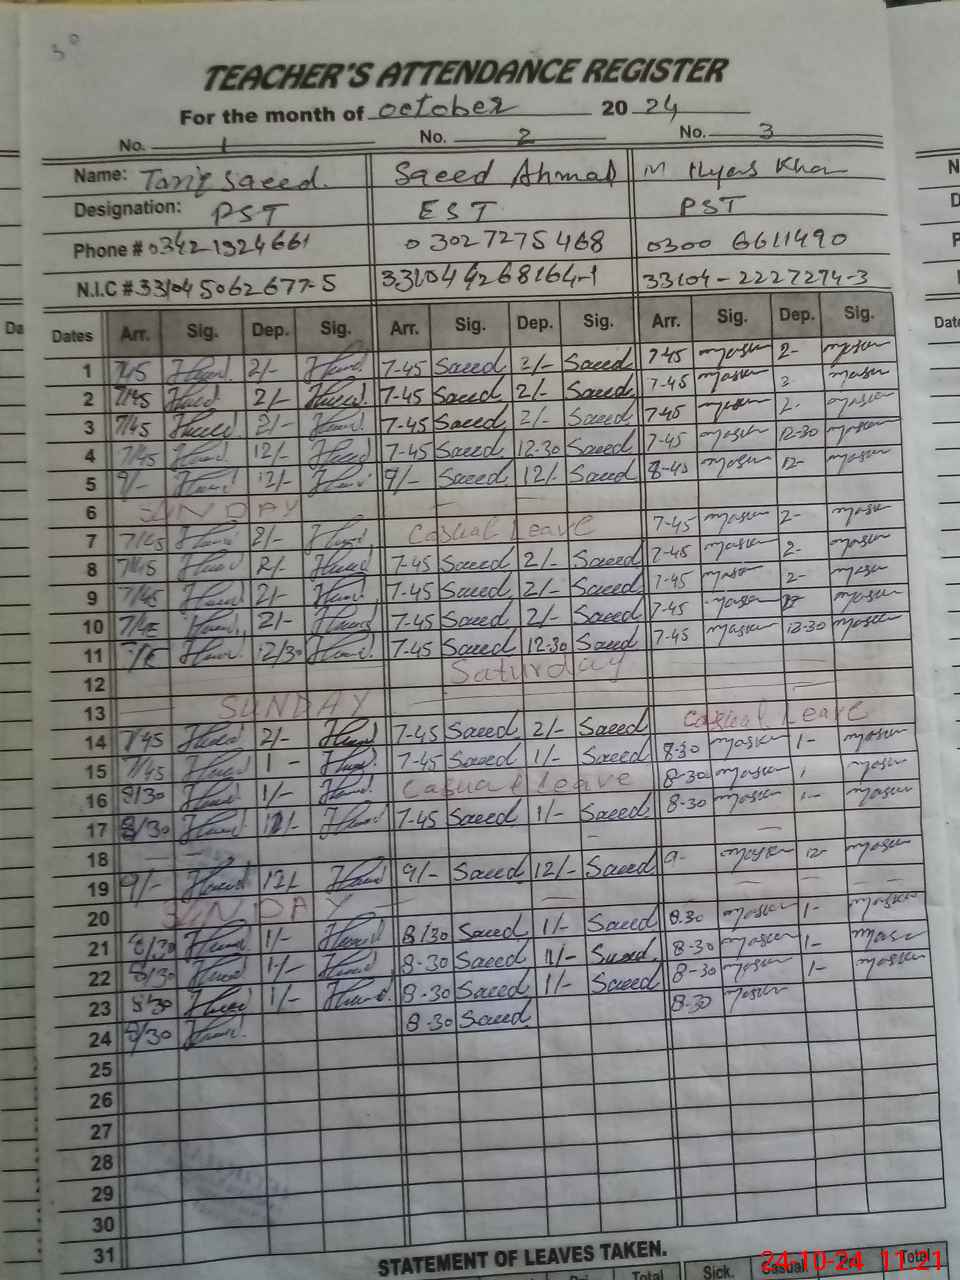 30
TEACHER'S ATTENDANCE REGISTER
For the month of October 2024
No. 1 No. 2 No. 3
Name: Tariq Saeed. Saeed Ahmad M Ilyas Khan
Designation: PST EST PST
Phone # 0342-1324661 03027275468 0300 6611490
N.I.C # 33104 5062677-5 331044268164-1 33104-2227274-3
Dates Arr. Sig. Dep. Sig. Arr. Sig. Dep. Sig. Arr. Sig. Dep. Sig.
1 7/45 2/- 7-45 Saeed 2/- Saeed 7-45 2-
2 7/45 2/- 7-45 Saeed 2/- Saeed 7-45 2
3 7/45 2/- 7-45 Saeed 2/- Saeed 7-45 2-
4 7/45 12/- 7-45 Saeed 12-30 Saeed 7-45 12-30
5 9/- 12/- 9/- Saeed 12/- Saeed 8-40 12-
6 SUNDAY
7 7/45 2/- Casual Leave 7-45 2-
8 7/45 2/- 7-45 Saeed 2/- Saeed 7-45 2-
9 7/45 2/- 7-45 Saeed 2/- Saeed 7-45 2-
10 7/45 2/- 7-45 Saeed 2/- Saeed 7-45
11 12/30 7-45 Saeed 12-30 Saeed 7-45 12-30
12 Saturday
13 SUNDAY
14 7/45 2/- 7-45 Saeed 2/- Saeed Casual Leave
15 7/45 1- 7-45 Saeed 1/- Saeed 8-30 1-
16 8/30 1/- Casual Leave 8-30
17 8/30 7-45 Saeed 1/- Saeed 8-30 1-
18
19 9/- 12/- 9/- Saeed 12/- Saeed 9- 12-
20 SUNDAY
21 8/30 1/- 8/30 Saeed 1/- Saeed 8.30 1-
22 8/30 1/- 8-30 Saeed 1/- Saeed 8-30 1-
23 8/30 1/- 8-30 Saeed 1/- Saeed 8-30 1-
24 8/30 8-30 Saeed 8-30
25
26
27
28
29
30
31
STATEMENT OF LEAVES TAKEN.
Total Sick. Casual Pri. Total
24-10-24 11:21